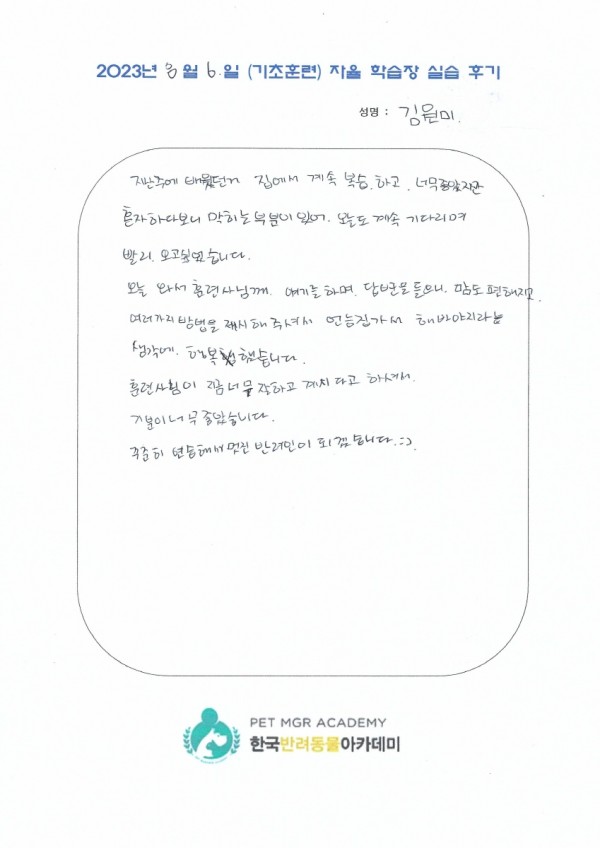 2023년 8월 6.일 (기초훈련) 자율 학습장 실습 후기
성명 : 김원미.
지난주에 배웠던거 집에서 계속 복습.하고, 너무좋았지만
혼자하다보니 막히는부분이 있어. 오늘도 계속 기다리며
빨리. 오고싶었습니다.
오늘 와서 훈련사님께. 얘기를하며. 답변을 들으니. 맘도 편해지고.
여러가지방법을 제시해 주셔서 언능집가서 해봐야지라는
생각에. 행복 했습니다.
훈련사님이 지금 너무 잘하고 계시다고 하셔서.
기분이너무 좋았습니다.
꾸준히 연습해서 멋진 반려인이 되겠습니다.:-)
PET MGR ACADEMY
한국반려동물아카데미